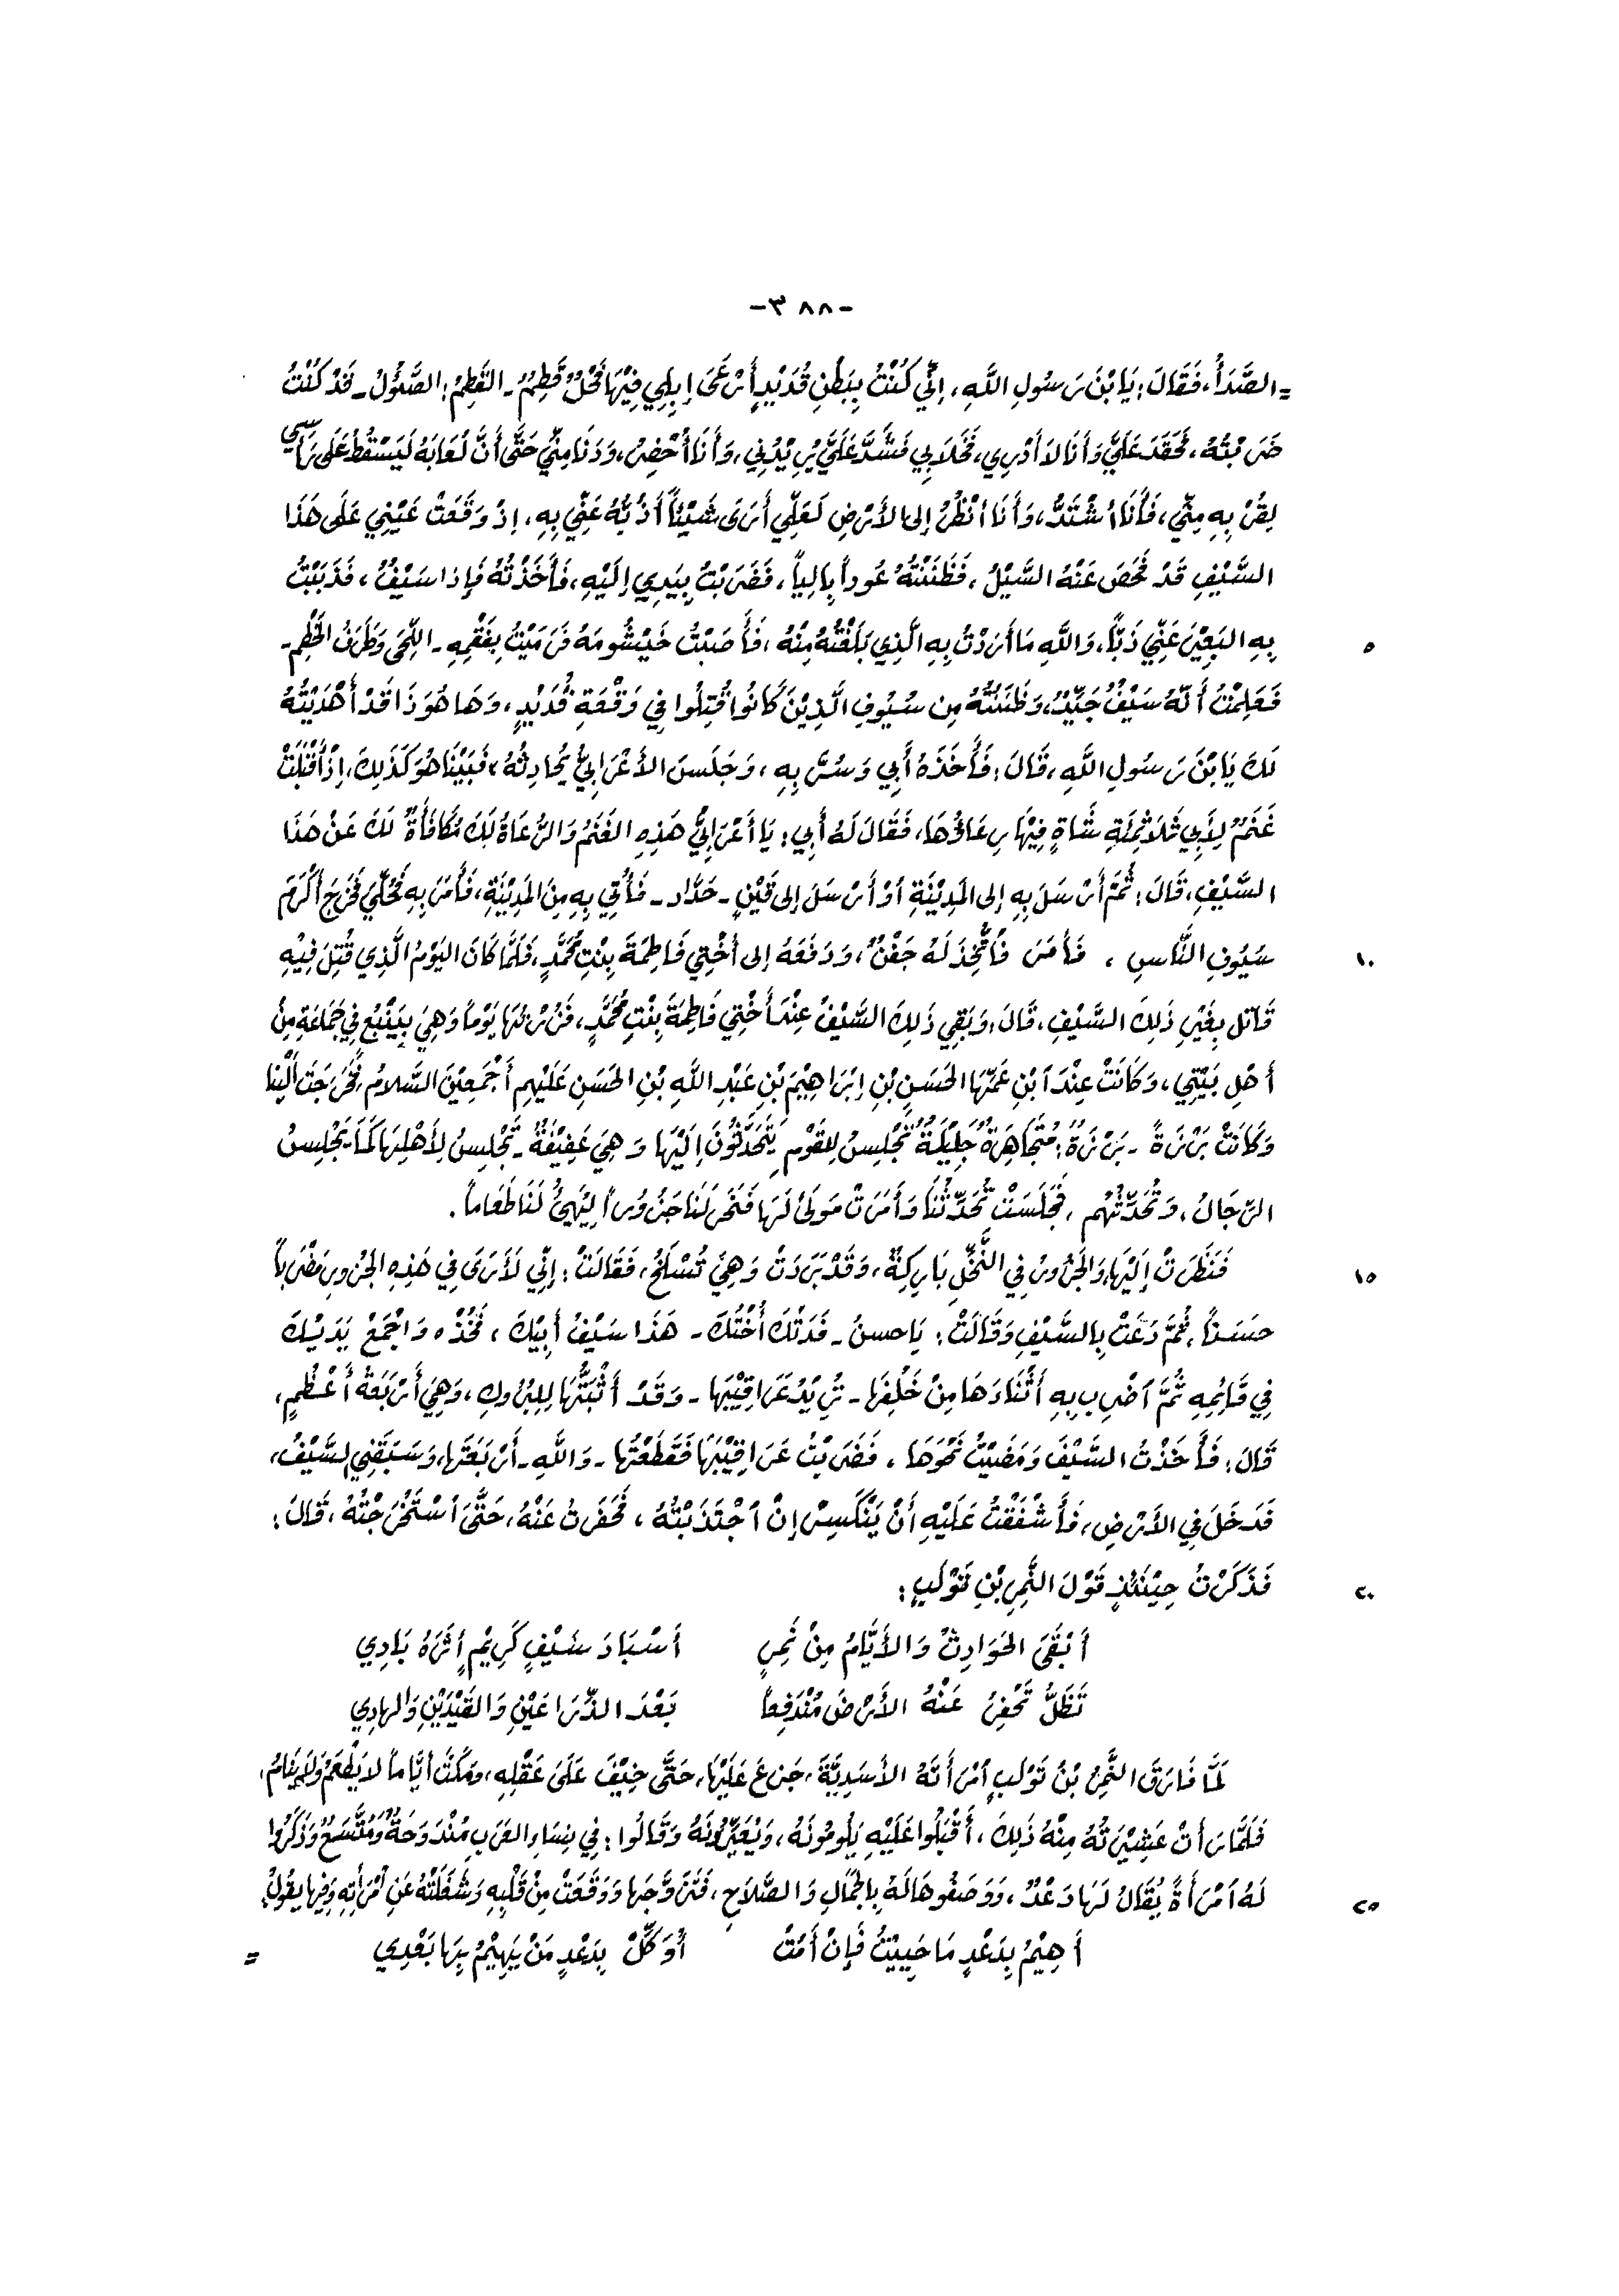 -٣٨٨-
= الصَّدَأُ، فَقَالَ: يَا بْنَ رَسُولِ اللَّهِ، إِنِّي كُنْتُ بِبَطْنِ قُدَيْدٍ أَرْعَى إِبِلِي فِيْهَا فَحْلٌ قَطِمٌ ـ القَطِمُ: الصَّؤُلْ ـ قَدْ كُنْتُ
ضَرَبْتُهُ، فَحَقَدَ عَلَيَّ وَأَنَا لاَ أَدْرِي، فَخَلاَ بِي فَشَدَّ عَلَيَّ يُرِيْدُنِي، وَأَنَا أُحْضِرُ، وَدَنَا مِنِّي حَتَّى أَنَّ لُعَابَهُ لَيَسْقُطُ عَلَى رَأْسِي
لِقُرْبِهِ مِنِّي، فَأَنَا أَشْتَدُّ، وَأَنَا أَنْظُرُ إلى الأَرْضِ لَعَلِّي أَرَى شَيْئاً أَذُبُّهُ عَنِّي بِهِ، إذْ وَقَعَتْ عَيْنِي عَلَى هَذَا
السَّيْفِ قَدْ فَحَصَ عَنْهُ السَّيْلُ، فَظَنَنْتُهُ عُوداً بِالِياً، فَضَرَبْتُ بِيَدِي إلَيْهِ، فَأَخَذْتُهُ فَإِذا سَيْفٌ، فَذَبَبْتُ
بِهِ البَعِيْرَ عَنِّي ذَبّاً، وَاللَّهِ مَا أَرَدْتُ بِهِ الَّذِي بَلَغْتُهُ مِنْهُ، فَأَصَبْتُ خَيْشُومَهُ فَرَمَيْتُ بِفَقْمِهِ ـ اللِّحَى وَطَرَفُ الخَطْمِ ـ
٥
فَعَلِمْتُ أَنَّهُ سَيْفٌ جَيِّدٌ، وَظَنَنْتُهُ مِن سُيُوفِ الَّذِيْنَ كَانُوا قُتِلُوا فِي وَقْعَةِ قُدَيْدٍ، وَهَا هُوَ ذَا قَدْ أَهْدَيْتُهُ
لَكَ يَا بْنَ رَسُولِ اللَّهِ، قَالَ: فَأَخَذَهُ أَبِي وَسُرَّ بِهِ، وَجَلَسَ الأَعْرَابِيُّ يُحَادِثُهُ، فَبَيْنَا هُوَ كَذَلِكَ، إِذْ أَقْبَلَتْ
غَنَمٌ لِأَبِي ثَلاَثُمِئَةِ شَاةٍ فِيْهَا رِعَاؤُهَا، فَقَالَ لَهُ أَبِي: يَا أَعْرَابِيُّ هَذِهِ الغَنَمُ وَالرُّعَاةُ لَكَ مُكَافَأَةٌ لَكَ عَنْ هَذَا
السَّيْفِ، قَالَ: ثُمَّ أَرْسَلَ بِهِ إلى المَدِيْنَةِ أَوْ أَرْسَلَ إلى قَيْنٍ ـ حَدَّاد ـ فَأُتِي بِهِ مِنَ المَدِيْنَةِ، فَأَمَرَ بِهِ فَحُلِّيَ فَخَرَجَ أَكْرَمَ
سُيُوفِ النَّاسِ، فَأَمَرَ فَأُتُّخِذَ لَهُ جَفْنٌ، وَدَفَعَهُ إلى أُخْتِي فَاطِمَةَ بِنْتِ مُحَمَّدٍ، فَلَمَّا كَانَ اليَوْمُ الَّذِي قُتِلَ فِيْهِ
١٠
قَاتَل بِغَيْرِ ذَلِكَ السَّيْفِ، قَالَ: وَبَقِي ذَلِكَ السَّيْفُ عِنْدَ أُخْتِي فَاطِمَةَ بِنْتِ مُحَمَّدٍ، فَزُرْتُهَا يَوْماً وَهِيَ بِيَنْبُعَ فِي جَمَاعَةٍ مِنْ
أَهْلِ بَيْتِي، وَكَانَتْ عِنْدَ آبْنِ عَمِّهَا الحَسَنِ بْنِ إبْرَاهِيْمَ بْنِ عَبْدِ اللَّهِ بْنِ الحَسَنِ عَلَيْهِم أَجْمَعِيْنَ السَّلاَمُ، فَخَرَجَتْ إلَيْنا
وَكَانَتْ بَرْزَةً ـ بَرْزَةٌ: مُتَجَاهِرَةٌ جَلِيْلَةٌ تَجْلِسُ لِلقَوْمِ يَتَحَدَّثُونَ إِلَيْهَا وَهِيَ عَفِيْفَةٌ ـ تَجْلِسُ لِأَهْلِهَا كَمَا يَجْلِسُ
الرِّجَالُ، وَتُحَدِّثُهُم، فَجَلَسَتْ تُحَدِّثُنَا وَأَمَرَتْ مَوْلَىً لَهَا فَنَحَرَ لَنَا جَزُوراً لِيُهَيِّئَ لَنَا طَعَاماً.
فَنَظَرَتْ إِلَيْهَا، وَالجَزُورُ فِي النَّخْلِ بَارِكَةٌ، وَقَدْ بَرَدَتْ وَهِيَ تُسْلَخُ، فَقَالَتْ: إِنِّي لَأَرَى فِي هَذِهِ الجَزُورِ مَضْرَباً
١٥
حَسَناً، ثُمَّ دَعَتْ بِالسَّيْفِ وَقَالَتْ: يَا حسنُ ـ فَدَتْكَ أُخْتُكَ ـ هَذَا سَيْفُ أَبِيْكَ، فَخُذْهُ وَاجْمَعْ يَدَيْكَ
فِي قَائِمِهِ ثُمَّ آضْرِب بِهِ أَثْنَاءَهَا مِنْ خَلْفِهَا ـ تُرِيْدُ عَرَاقِيْبَهَا ـ وَقَدْ أَثْبَتُّهَا لِلبُرُوكِ، وَهِيَ أَرْبَعَةُ أَعْظُمٍ،
قَالَ: فَأَخَذْتُ السَّيْفَ وَمَضَيْتُ نَحْوَهَا، فَضَرَبْتُ عَرَاقِيْبَهَا فَقَطَعْتُهَا ـ وَاللَّهِ ـ أَرْبَعَتَهَا، وَسَبَقَنِي السَّيْفُ،
فَدَخَلَ فِي الأَرْضِ، فَأَشْفَقْتُ عَلَيْهِ أَنْ يَنْكَسِرَ إنْ آجْتَذَبْتُهُ، فَحَفَرتُ عَنْهُ، حَتَّى آسْتَخْرَجْتُهُ، قَالَ:
فَذَكَرْتُ حِيْنَئِذٍ قَوْلَ النَّمِرِ بْنِ تَوْلَبٍ:
٢٠
أَبْقَى الحَوَادِثُ وَالأَيَّامُ مِنْ نَمِرٍ أَسْبَادَ سَيْفٍ كَرِيْمٍ أَثَرُهُ بَادِي
تَظَلُّ تَحْفِرُ عَنْهُ الأَرْضَ مُنْدَفِعاً بَعْدَ الذِّرَاعَيْنِ وَالقَيْدَيْنِ وَالهادِي
لَمَّا فَارَقَ النَّمِرُ بْنُ تَوْلَبٍ آمْرَأَتَهُ الأَسَدِيَّةَ، جَزِعَ عَلَيْهَا، حَتَّى خِيْفَ عَلَى عَقْلِهِ، وَمَكَثَ أَيَّاماً لاَ يَطْعَمُ وَلاَ يَنَامُ،
فَلَمَّا رَأَتْ عَشِيْرَتُهُ مِنْهُ ذَلِكَ، أَقْبَلُوا عَلَيْهِ يَلُومُونَهُ، وَيُعَيِّرُونَهُ وَقَالُوا: فِي نِسَاءِ العَرَبِ مَنْدُوحَةٌ وَمُتَّسَعٌ، وَذَكَرُوا
لَهُ آمْرَأَةً يُقَالُ لَهَا دَعْدٌ، وَوَصَفُوهَا لَهُ بِالجَمَالِ وَالصَّلاَحِ، فَتَزَوَّجَهَا وَوَقَعَتْ مِنْ قَلْبِهِ وَشَغَلَتْهُ عَنِ آمْرَأَتِهِ وَفِيهَا يَقُولُ:
٢٥
أَهِيْمُ بِدَعْدٍ مَا حَيِيْتُ فَإِنْ أَمُتْ أُوَكِّلْ بِدَعْدٍ مَنْ يَهِيْمُ بِهَا بَعْدِي =